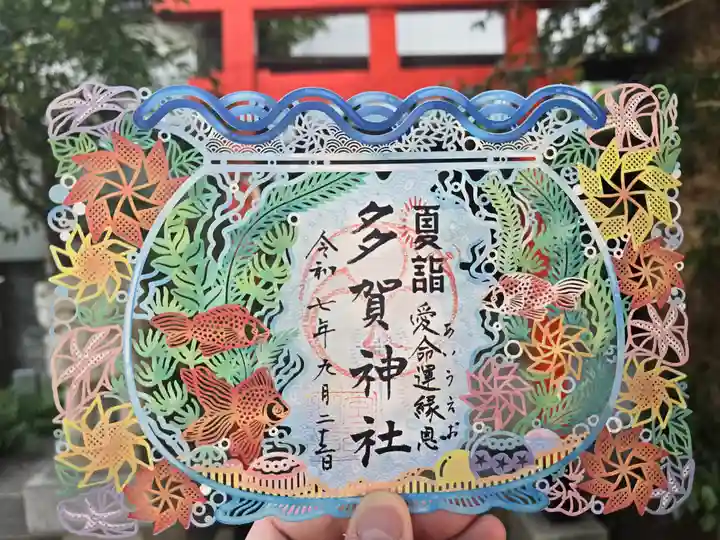 夏詣
あいうえお
愛命運縁恩
多賀神社
令和七年九月二十三日